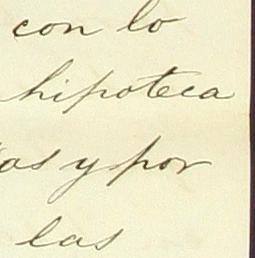 con lo
hipoteca
as y por
las